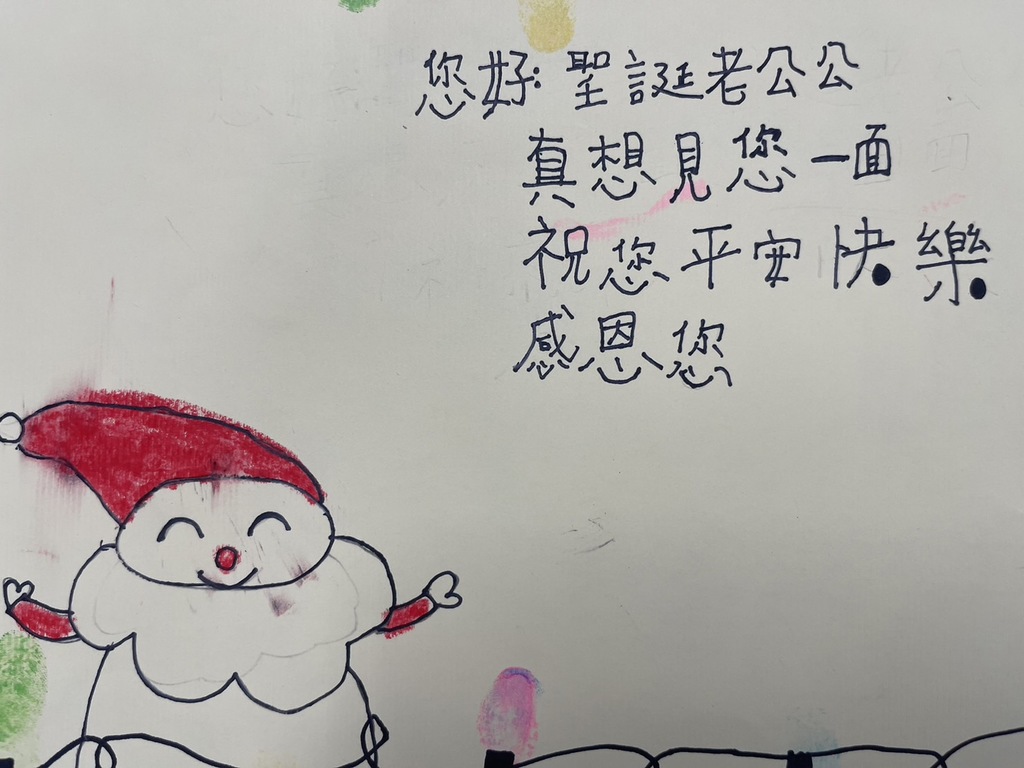 您好:聖誕老公公
真想見您一面
祝您平安快樂
感恩您